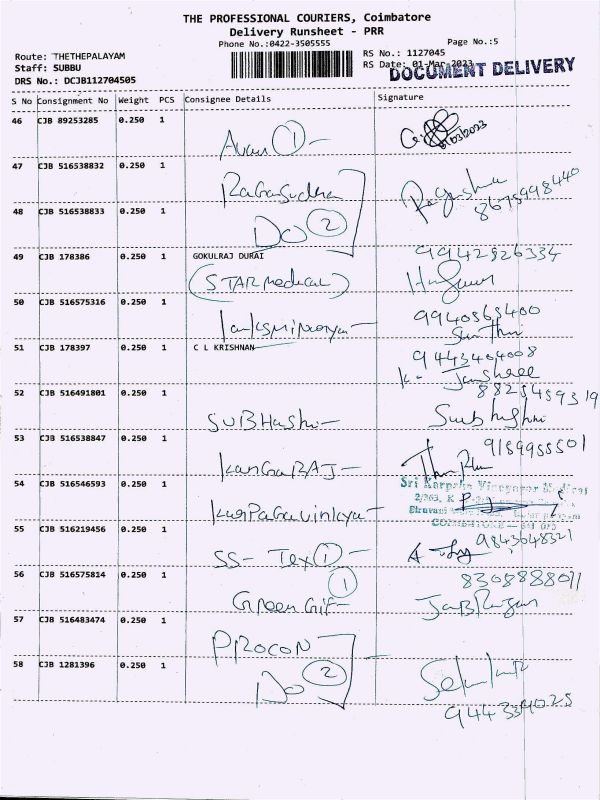 THE PROFESSIONAL COURIERS, Coimbatore
Delivery Runsheet - PRR
Phone No.:0422-3505555
Page No.:5
Route: THETHEPALAYAM
RS No.: 1127045
Staff: SUBBU
RS Date: 01-Mar-2023
DRS No.: DCJB112704505
DOCUMENT DELIVERY
S No Consignment No Weight PCS Consignee Details Signature
46 CJB 89253285 0.250 1
1
01/03/2023
47 CJB 516538832 0.250 1
RagaSudha
8675998440
48 CJB 516538833 0.250 1
DO 2
49 CJB 178386 0.250 1 GOKULRAJ DURAI
9942926334
(STAR medical)
50 CJB 516575316 0.250 1
9940565400
51 CJB 178397 0.250 1 C L KRISHNAN
9443404008
K. Jansheee
52 CJB 516491801 0.250 1
8825459319
SUBHashi-
53 CJB 516538847 0.250 1
9189955501
KangaRAJ-
54 CJB 516546593 0.250 1
Sri Karpaka Vinayagar Medical
KarpagaVinaya-
COIMBATORE
55 CJB 516219456 0.250 1
9843648321
SS- Tex 1
56 CJB 516575814 0.250 1
1
8308888011
Green Gif-
57 CJB 516483474 0.250 1
PROCON
58 CJB 1281396 0.250 1
DO 2
944334025